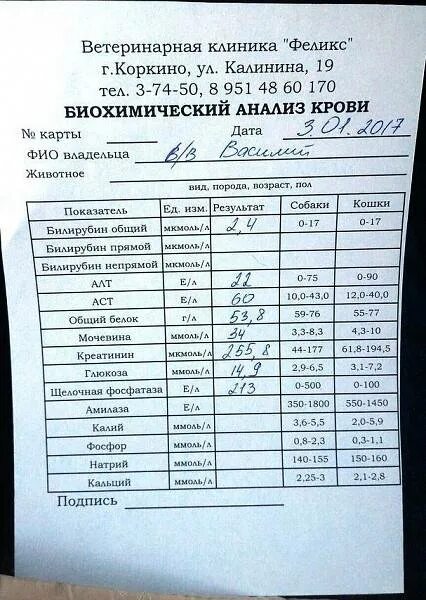 Ветеринарная клиника "Феликс"
г.Коркино, ул. Калинина, 19
тел. 3-74-50, 8 951 48 60 170
БИОХИМИЧЕСКИЙ АНАЛИЗ КРОВИ
№ карты Дата 3.01.2017
ФИО владельца в/в Василий
Животное
вид, порода, возраст, пол
Показатель Ед. изм. Результат Собаки Кошки
Билирубин общий мкмоль/л 2,4 0-17 0-17
Билирубин прямой мкмоль/л
Билирубин непрямой мкмоль/л
АЛТ Е/л 22 0-75 0-90
АСТ Е/л 60 10,0-43,0 12,0-40,0
Общий белок г/л 53,8 59-76 55-77
Мочевина ммоль/л 34 3,3-8,3 4,3-10
Креатинин мкмоль/л 255,8 44-177 61,8-194,5
Глюкоза ммоль/л 14,9 2,9-6,5 3,1-7,2
Щелочная фосфатаза Е/л 213 0-500 0-100
Амилаза Е/л 350-1800 550-1450
Калий ммоль/л 3,6-5,5 2,0-5,9
Фосфор ммоль/л 0,8-2,3 0,3-1,1
Натрий ммоль/л 140-155 150-160
Кальций ммоль/л 2,25-3 2,1-2,8
Подпись